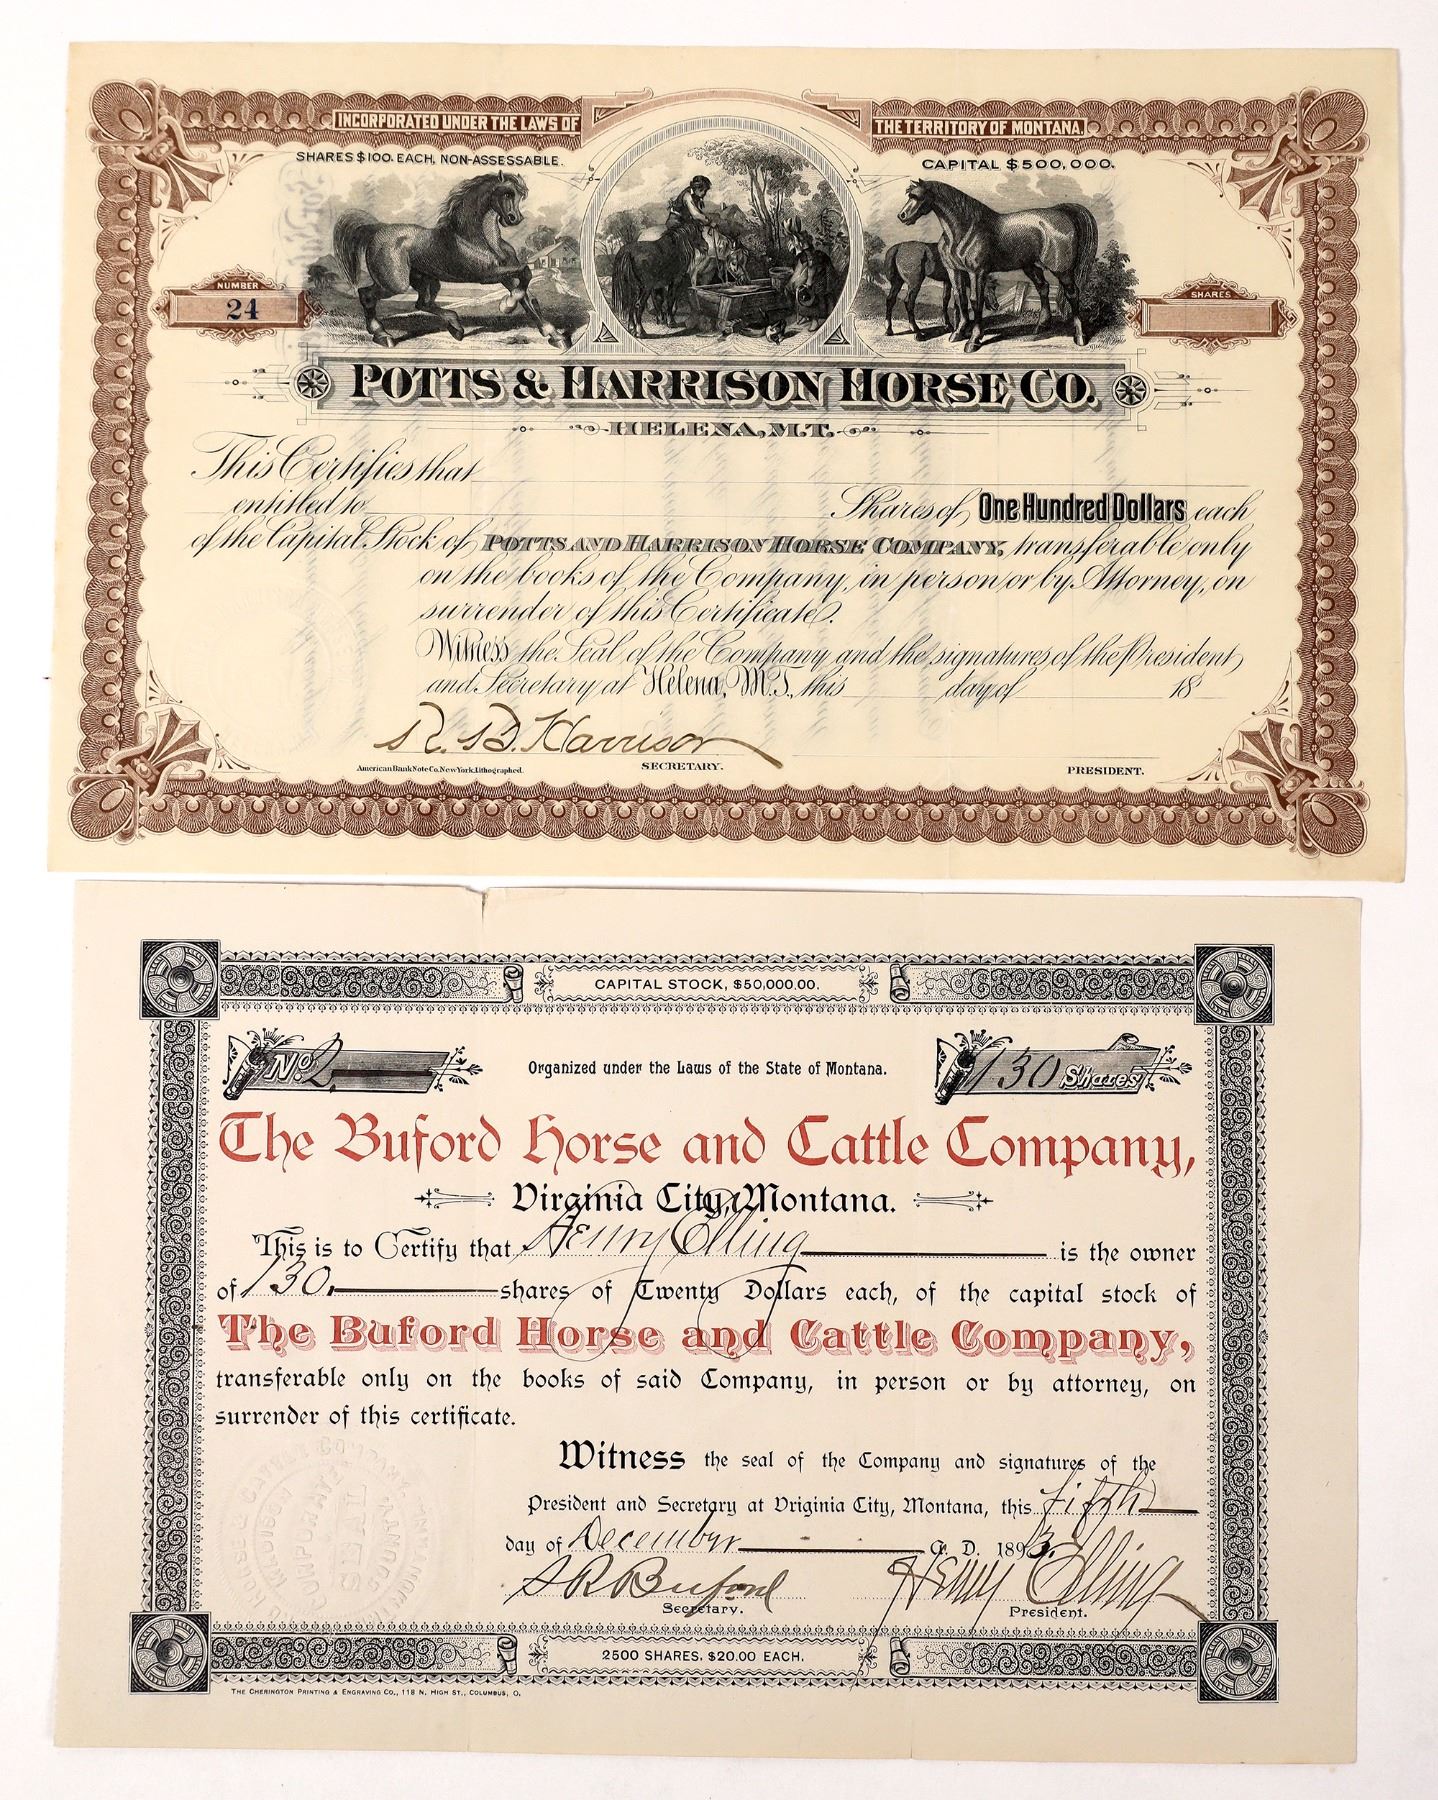 INCORPORATED UNDER THE LAWS OF THE TERRITORY OF MONTANA.
SHARES $100. EACH, NON-ASSESSABLE. CAPITAL $500,000.
NUMBER
24
SHARES
POTTS & HARRISON HORSE CO.
HELENA, M.T.
This Certifies that
entitled to Shares of One Hundred Dollars each
of the Capital Stock of POTTS AND HARRISON HORSE COMPANY, transferable only
on the books of the Company, in person or by Attorney, on
surrender of this Certificate.
Witness the Seal of the Company and the signatures of the President
and Secretary at Helena, M.T., this day of 18
R. B. Harrison
American Bank Note Co. New York. Lithographed. SECRETARY. PRESIDENT.
CAPITAL STOCK, $50,000.00.
No. 2 Organized under the Laws of the State of Montana. 130 Shares
The Buford Horse and Cattle Company,
Virginia City, Montana.
This is to Certify that Henry Elling is the owner
of 130 shares of Twenty Dollars each, of the capital stock of
The Buford Horse and Cattle Company,
transferable only on the books of said Company, in person or by attorney, on
surrender of this certificate.
Witness the seal of the Company and signatures of the
President and Secretary at Virginia City, Montana, this fifth
day of December A. D. 1893.
S R Buford Henry Elling
Secretary. President.
HORSE & CATTLE COMPANY
MADISON COUNTY
CORPORATE
SEAL
2500 SHARES, $20.00 EACH.
THE CHERINGTON PRINTING & ENGRAVING CO., 118 N. HIGH ST., COLUMBUS, O.